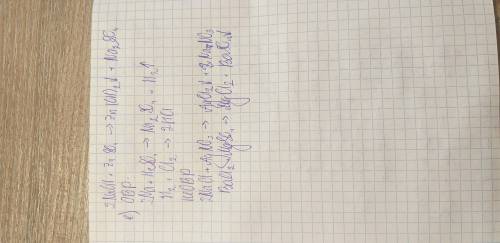 2NaCl + ZnSO₄ → Zn(Cl)₂↓ + Na₂SO₄
в) ОВР
2Na + H₂SO₄ → Na₂SO₄ + H₂↑
H₂ + Cl₂ → 2HCl
неОВР
2NaCl + AgNO₃ → AgCl₂↓ + 2NaNO₃
BaCl₂ + MgSO₄ → MgCl₂ + BaSO₄↓